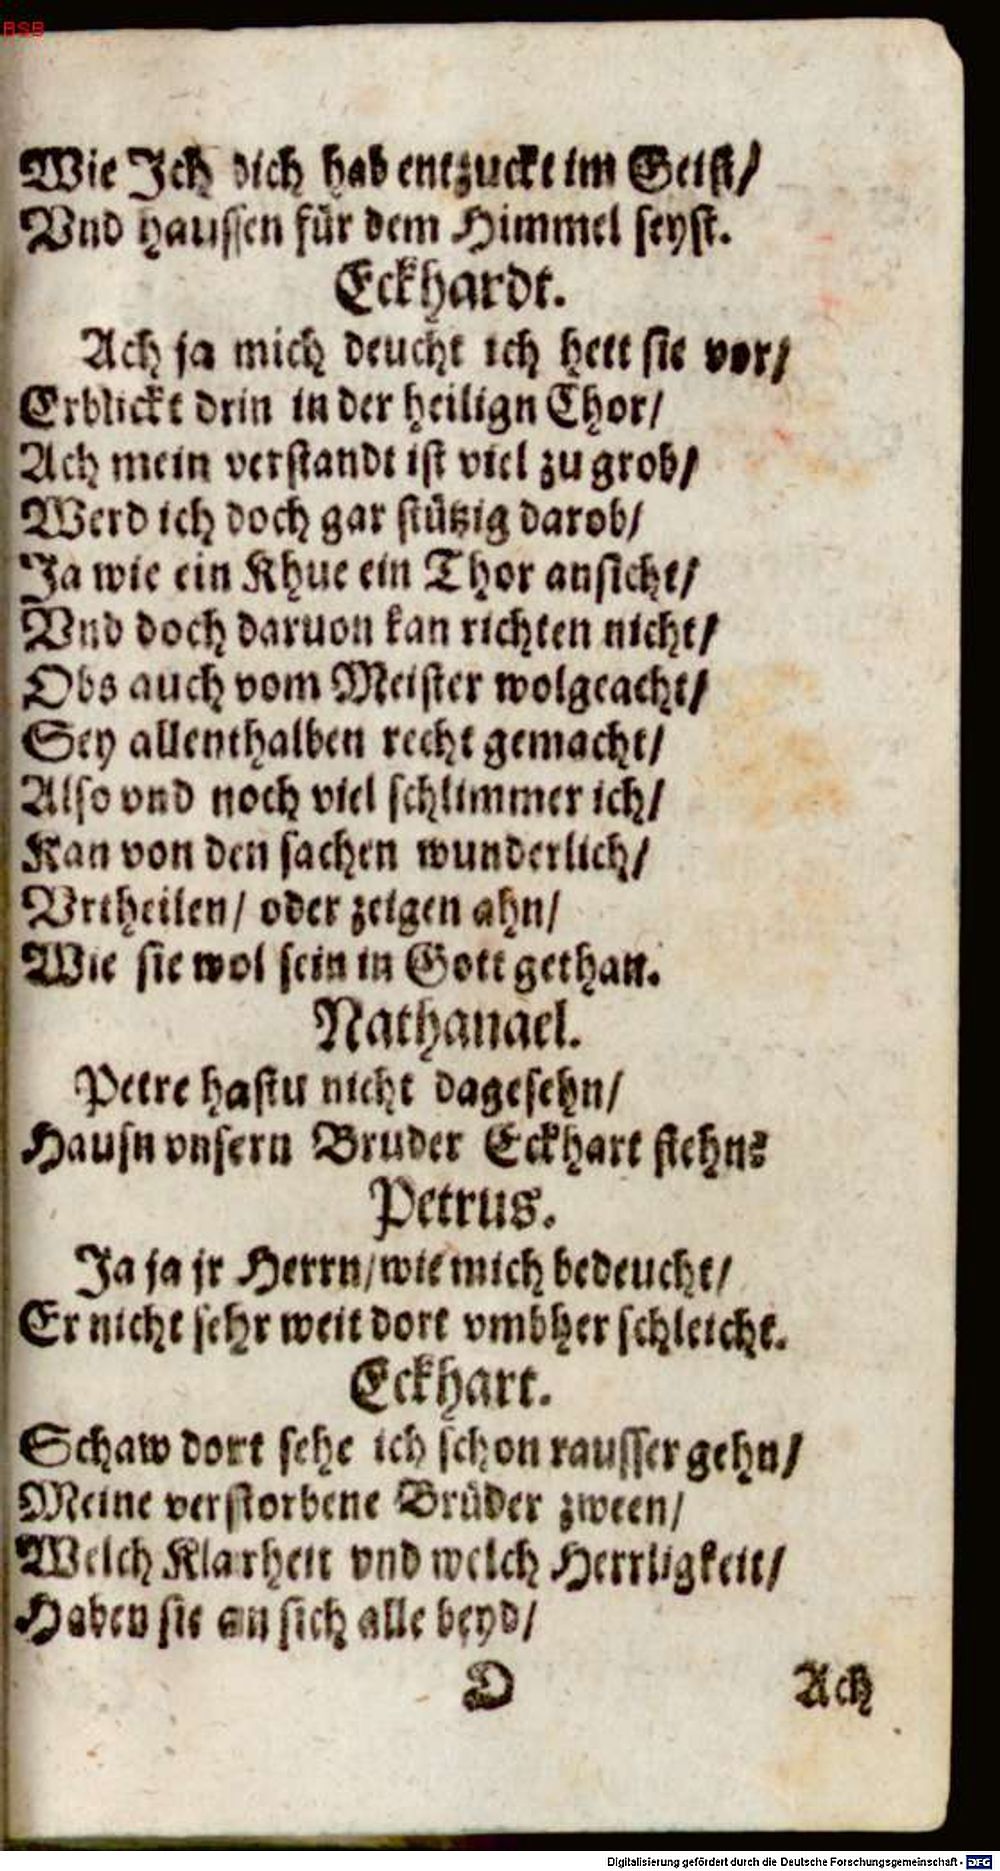 BSB
Wie Jch dich hab entzuckt im Geist/
Vnd haussen für dem Himmel seyst.
Eckhardt.
Ach ja mich deucht ich hett sie vor/
Erblickt drin in der heilign Chor/
Ach mein verstandt ist viel zu grob/
Werd ich doch gar stützig darob/
Ja wie ein Khue ein Thor ansicht/
Vnd doch daruon kan richten nicht/
Obs auch vom Meister wolgeacht/
Sey allenthalben recht gemacht/
Also vnd noch viel schlimmer ich/
Kan von den sachen wunderlich/
Vrtheilen/ oder zeigen ahn/
Wie sie wol sein in Gott gethan.
Nathanael.
Petre hastu nicht dagesehn/
Hausn vnsern Bruder Eckhart stehn?
Petrus.
Ja ja jr Herrn/ wie mich bedeucht/
Er nicht sehr weit dort vmbher schleicht.
Eckhart.
Schaw dort sehe ich schon rausser gehn/
Meine verstorbene Brüder zween/
Welch Klarheit vnd welch Herrligkeit/
Haben sie an sich alle beyd/
D Ach
Digitalisierung gefördert durch die Deutsche Forschungsgemeinschaft - DFG